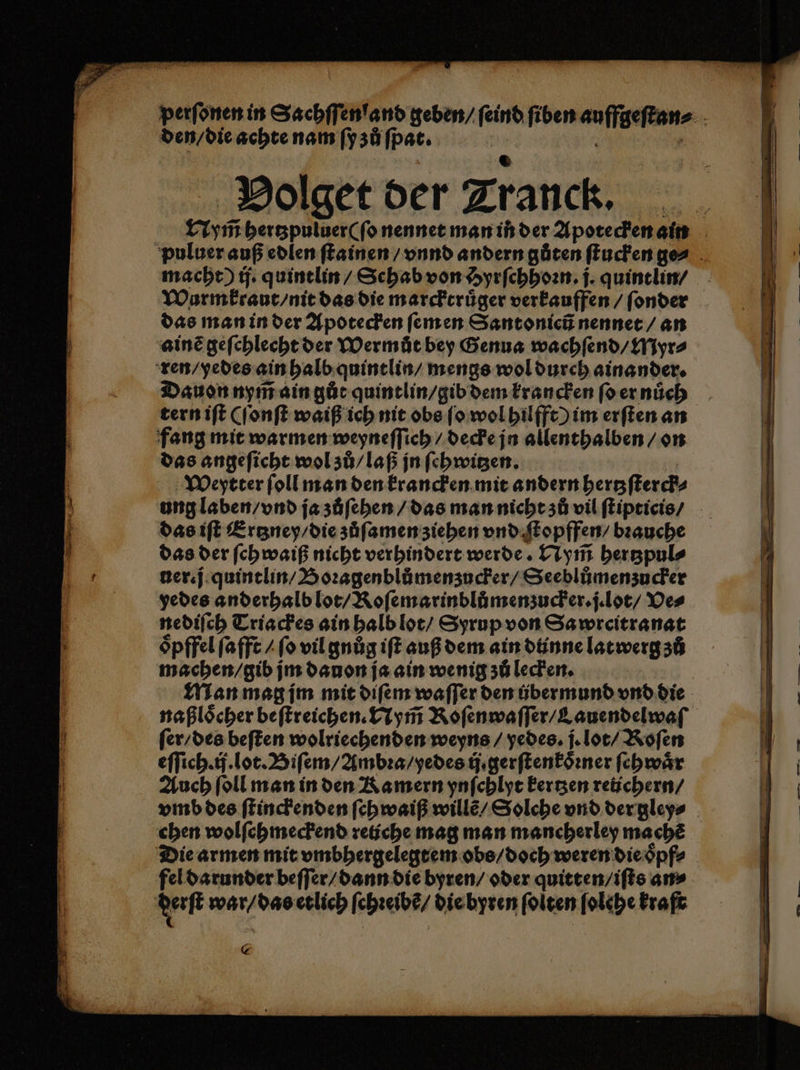 perſonen in Sachſſenland geben/ ſeind ſiben auffgeſtan⸗
den/die achte nam ſy zů ſpat.
Volget der Tranck.
Nym̃ hertzpuluer(ſo nennet man in̄ der Apotecken ain
puluer auß edlen ſtainen / vnnd andern gůten ſtucken ge⸗
macht) ij. quintlin / Schab von Hyrſchhoꝛn. j. quintlin/
Wurmkraut/nit das die marcktrůger verkauffen / ſonder
das man in der Apotecken ſemen Santonicū nennet / an
ainē geſchlecht der Wermůt bey Genua wachſend/Myr⸗
ren/yedes ain halb quintlin/ mengs wol durch ainander.
Dauon nym̃ ain gůt quintlin/gib dem krancken ſo er nůch
tern iſt (ſonſt waiß ich nit obs ſo wol hilfft) im erſten an
fang mit warmen weyneſſich / decke jn allenthalben / on
das angeſicht wol zů/laß jn ſchwitzen.
Weytter ſoll man den krancken mit andern hertzſterck⸗
ung laben/vnd ja zůſehen / das man nicht zů vil ſtipticis/
das iſt Ertzney/die zůſamen ziehen vnd ſtopffen/ bꝛauche
das der ſchwaiß nicht verhindert werde. Nym̃ hertzpul⸗
uer.j quintlin/Boꝛagenblůmenzucker/Seeblůmenzucker
yedes anderhalb lot/Roſemarinblůmenzucker.j.lot/ Ve⸗
nediſch Triackes ain halb lot/ Syrup von Sawrcitranat
oͤpffel ſafft / ſo vil gnůg iſt auß dem ain dünne latwerg zů
machen/gib jm dauon ja ain wenig zů lecken.
Man mag jm mit diſem waſſer den übermund vnd die
naßloͤcher beſtreichen. Nym̃ Roſenwaſſer/Lauendelwaſ
ſer/des beſten wolriechenden weyns / yedes. j. lot/ Roſen
eſſich.ij.lot. Biſem/Ambꝛa/yedes ij.gerſtenkoͤꝛner ſchwaͤr
Auch ſoll man in den Kamern ynſchlyt kertzen reüchern/
vmb des ſtinckenden ſchwaiß willē/ Solche vnd der gley⸗
chen wolſchmeckend reüche mag man mancherley machē
Die armen mit vmbhergelegtem obs/doch weren die oͤpf⸗
fel darunder beſſer/dann die byren/ oder quitten/iſts an⸗
derſt war/das etlich ſchꝛeibē/ die byren ſolten ſolche krafft